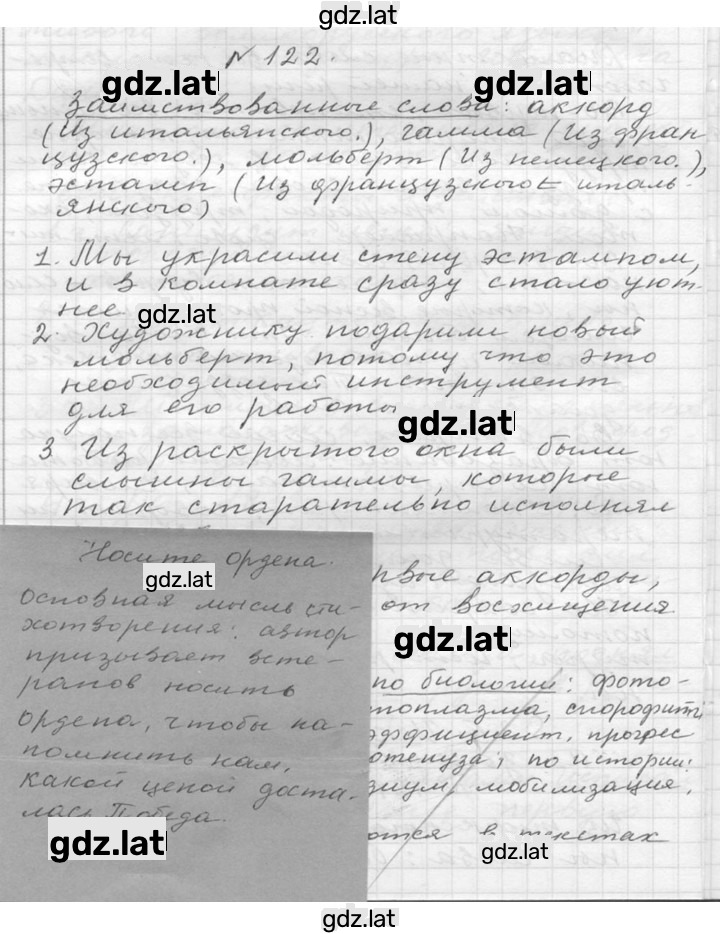 gdz.lat
№ 122.
gdz.lat
Заимствованные слова: аккорд
(Из итальянского.), гамма (Из фран-
цузского.), мольберт (Из немецкого.),
эстамп (Из французского ← италь-
янского)
1. Мы украсили стену эстампом,
и в комнате сразу стало уют-
нее
gdz.lat
2. Художнику подарили новый
мольберт, потому что это
необходимый инструмент
для его работы
gdz.lat
3 Из раскрытого окна были
слышны гаммы, которые
так старательно исполнял
Носите ордена.
gdz.lat
Основная мысль сти-
хотворения: автор
призывает вете-
ранов носить
ордена, чтобы на-
помнить нам,
какой ценой доста-
лась Победа.
gdz.lat
рвые аккорды,
от восхищения
gdz.lat
по биологии: фото-
топлазма, спорофит
эффициент, прогрес
отенуза; по истории:
зиум, мобилизация,
ются в текстах
gdz.lat
gdz.lat